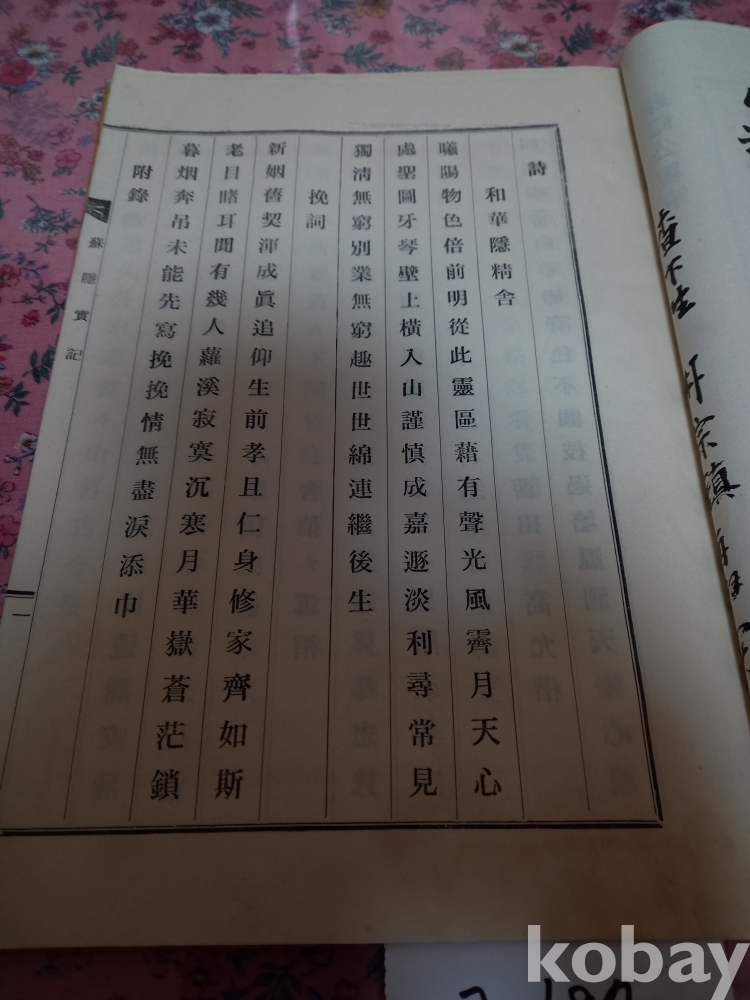 詩
和華隱精舍
曦陽物色倍前明從此靈區藉有聲光風霽月天心
處聖圖牙琴壁上橫入山謹慎成嘉遯淡利尋常見
獨淸無窮別業無窮趣世世綿連繼後生
挽詞
新姻舊契渾成眞追仰生前孝且仁身修家齊如斯
老目睹耳聞有幾人蘿溪寂寞沉寒月華嶽蒼茫鎖
暮烟奔吊未能先寫挽挽情無盡淚添巾
附錄
蘇隱實記
一
kobay